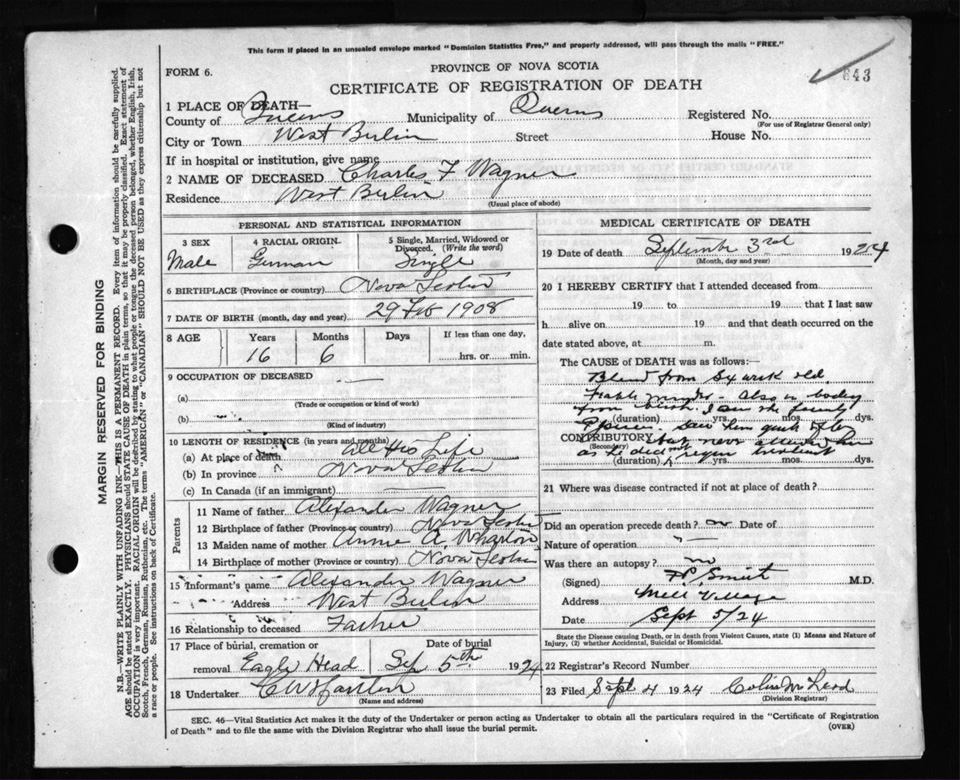 This form if placed in an unsealed envelope marked "Dominion Statistics Free," and properly addressed, will pass through the mails "FREE."
FORM 6.
PROVINCE OF NOVA SCOTIA
643
CERTIFICATE OF REGISTRATION OF DEATH
1 PLACE OF DEATH—
County of Queens Municipality of Queens Registered No.
(For use of Registrar General only)
City or Town West Berlin Street House No.
If in hospital or institution, give name
2 NAME OF DECEASED Charles F Wagner
Residence West Berlin
(Usual place of abode)
PERSONAL AND STATISTICAL INFORMATION
3 SEX 4 RACIAL ORIGIN 5 Single, Married, Widowed or Divorced. (Write the word)
Male German Single
6 BIRTHPLACE (Province or country) Nova Scotia
7 DATE OF BIRTH (month, day and year) 29 Feb 1908
8 AGE Years Months Days If less than one day,
16 6 hrs. or min.
9 OCCUPATION OF DECEASED
(a)
(Trade or occupation or kind of work)
(b)
(Kind of industry)
10 LENGTH OF RESIDENCE (in years and months)
(a) At place of death All His Life
(b) In province Nova Scotia
(c) In Canada (if an immigrant)
Parents
11 Name of father Alexander Wagner
12 Birthplace of father (Province or country) Nova Scotia
13 Maiden name of mother Annie A Wharton
14 Birthplace of mother (Province or country) Nova Scotia
15 Informant's name Alexander Wagner
Address West Berlin
16 Relationship to deceased Father
17 Place of burial, cremation or removal Eagle Head Date of burial Sep 5th 1924
18 Undertaker
(Name and address)
MEDICAL CERTIFICATE OF DEATH
19 Date of death September 3rd 1924
(Month, day and year)
20 I HEREBY CERTIFY that I attended deceased from
19 to 19 that I last saw
h alive on 19 and that death occurred on the
date stated above, at m.
The CAUSE OF DEATH was as follows:
Blind from Six week old.
Feeble minded - Also in body
from birth. I am the family
(duration) yrs. mos. dys.
CONTRIBUTORY but never attended him
(Secondary)
as he did not treatment
(duration) yrs. mos. dys.
21 Where was disease contracted if not at place of death?
Did an operation precede death? no Date of
Nature of operation
Was there an autopsy? no
(Signed) Smith M.D.
Address Mill Village
Date Sept 5/24
State the Disease causing Death, or in death from Violent Causes, state (1) Means and Nature of Injury, (2) whether Accidental, Suicidal or Homicidal.
22 Registrar's Record Number
23 Filed Sept 4 1924 Colin McLeod
(Division Registrar)
SEC. 46—Vital Statistics Act makes it the duty of the Undertaker or person acting as Undertaker to obtain all the particulars required in the "Certificate of Registration
of Death" and to file the same with the Division Registrar who shall issue the burial permit. (OVER)
MARGIN RESERVED FOR BINDING
N.B.—WRITE PLAINLY WITH UNFADING INK—THIS IS A PERMANENT RECORD. Every item of information should be carefully supplied.
AGE should be stated EXACTLY. PHYSICIANS should STATE CAUSE OF DEATH in plain terms, so that it may be properly classified. Exact statement of
OCCUPATION is very important. RACIAL ORIGIN will be described by stating to what people or tongue the deceased person belonged, whether English, Irish,
Scotch, French, German, Russian, Ruthenian, etc. The terms "AMERICAN" or "CANADIAN" SHOULD NOT BE USED as they express citizenship but not
a race or people. See instructions on back of Certificate.